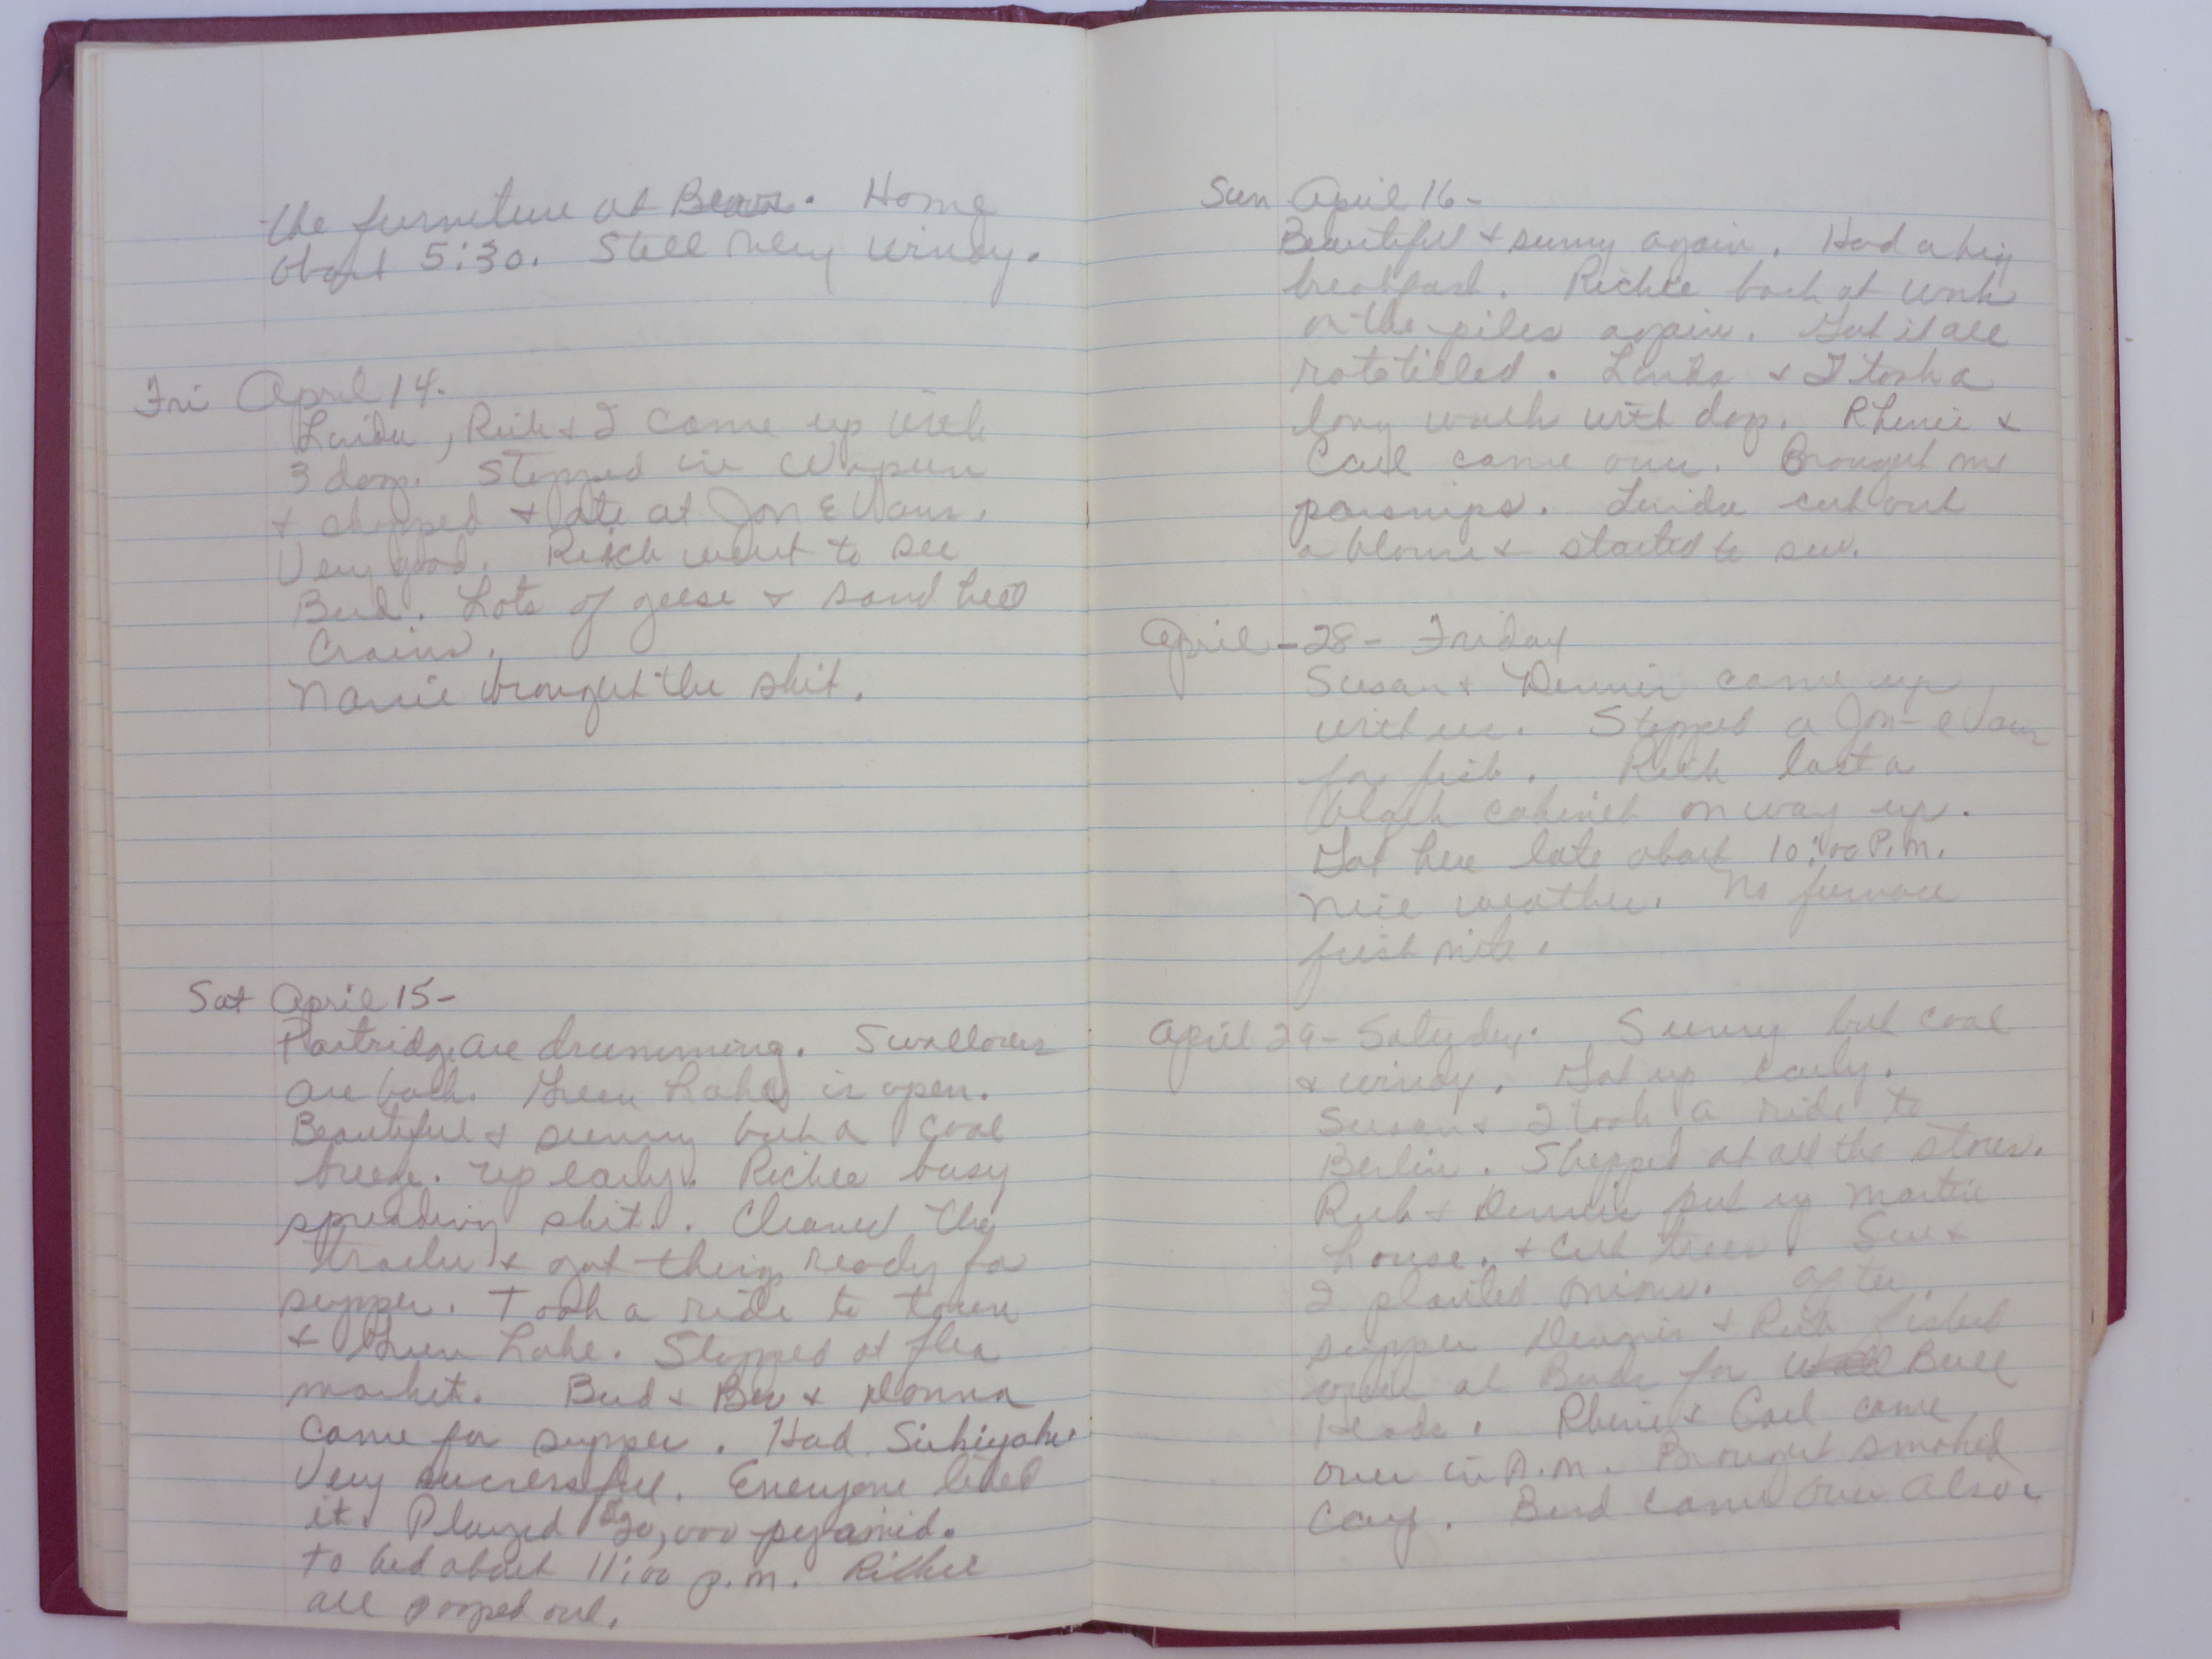 the furniture at Bears. Home
about 5:30. Still very windy.
Fri April 14.
Linda, Rich & I came up with
3 dogs. Stopped in Waupun
& shopped & ate at Jon E Vans.
Very good. Rich went to see
Bud. Lots of geese & sand hill
Crains.
Narrie brought the shit.
Sat April 15-
Partridge are drumming. Swallows
are back. Green Lake is open.
Beautiful & sunny but a cool
breeze. Up early. Richie busy
spreading shit. Cleaned the
trailer & got things ready for
supper. Took a ride to town
& Green Lake. Stopped at flea
market. Bud & Bev & Donna
came for supper. Had Sukiyaki
Very successful. Everyone liked
it. Played $20,000 pyramid.
To bed about 11:00 p.m. Richie
all pooped out.
Sun April 16-
Beautiful & sunny again. Had a big
breakfast. Richie back at work
on the piles again. Got it all
rototilled. Linda & I took a
long walk with dogs. Rhenie &
Carl came over. Brought me
parsnips. Linda cut out
a blouse & started to sew.
April-28- Friday
Susan & Dennis came up
with us. Stopped a Jon-e Vans
for fish. Rich lost a
black cabinet on way up.
Got here late about 10:00 P.M.
Nice weather. No furnace
first nite.
April 29- Saturday. Sunny but cool
& windy. Got up early.
Susan & I took a ride to
Berlin. Shopped at all the stores.
Rich & Dennis put up Martin
house. & cut trees. Sue &
I planted onions. After
supper Dennis & Rich fished
over at Buds for Bull
Heads. Rhenie & Carl came
over in A.M. Brought smoked
Carp. Bud came over also.